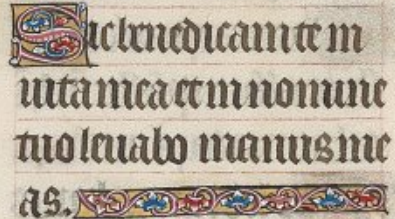 Sic benedicam te in
uita mea et in nomine
tuo leuabo manus me
as.